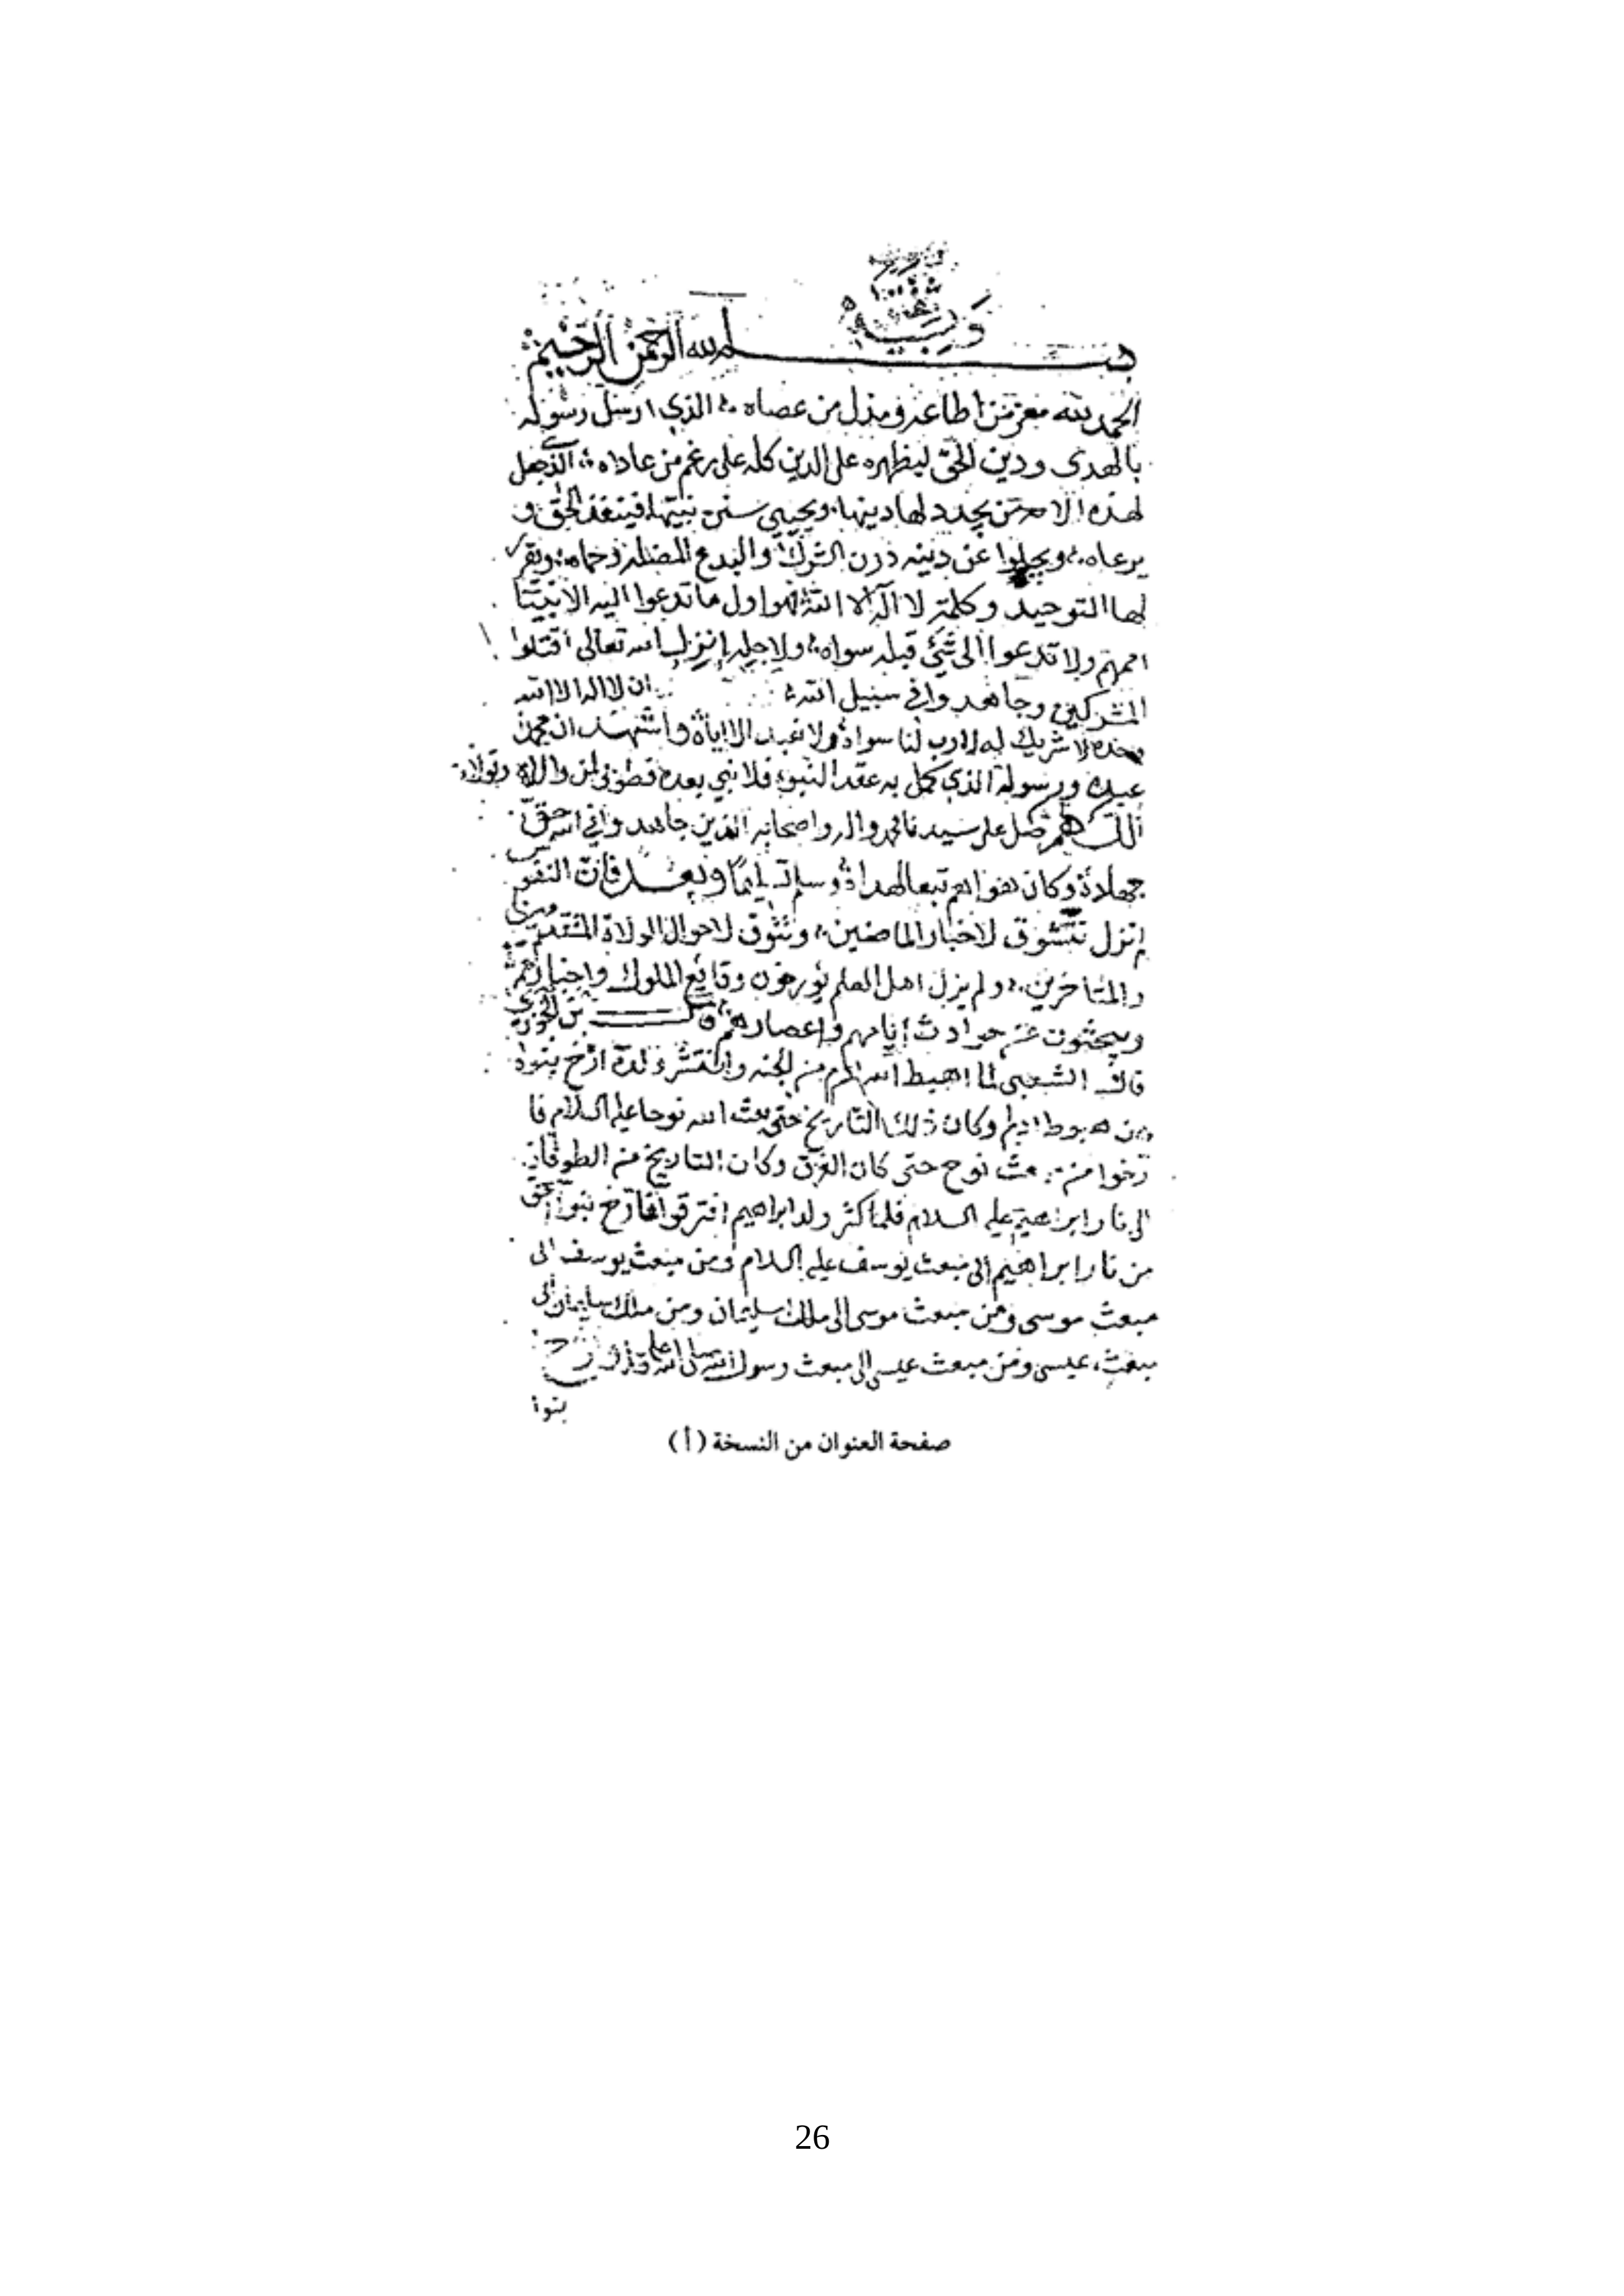 بسم الله الرحمن الرحيم
الحمد لله معز من اطاعه ومذل من عصاه الذي ارسل رسوله
بالهدى ودين الحق ليظهره على الدين كله على رغم من عاداه الذي جعل
لهذه الامة من يجدد لها دينها ويحيي سنن نبيها فينفذ الحق و
يرعاه ويجلوا عن دينه درن الشرك والبدع المضلة وحماه ويقر
لها التوحيد وكلمة لا اله الا الله فهو اول ما تدعوا اليه الانبيا
اممهم ولا تدعوا الى شئ قبله سواه ولاجله انزل الله تعالى اقتلوا
المشركين وجاهدوا في سبيل الله ان لا اله الا الله
وحده لا شريك له لا رب لنا سواه ولا نعبد الا اياه واشهد ان محمدا
عبده ورسوله الذي كمل به عقد النبوة فلا نبي بعده فطوبى لمن والاه وتولاه
اللهم صل على سيدنا محمد واله واصحابه الذين جاهدوا في الله حق
جهاده وكان هواهم تبعا لهداه وسلم تسليما وبعد فان النفوس
لم تزل تتشوق لاخبار الماضين وتتوق لاحوال الولاة المتقدمين
والمتاخرين ولم يزل اهل العلم يورخون وقايع الملوك واخبارهم
ويبحثون عن حوادث ايامهم واعصارهم قال بن الجوزي
قال الشعبي لما اهبط الله ادم من الجنه وانتشر ولده ارخ بنوه
من هبوط ادم وكان ذلك التاريخ حتى بعث الله نوحا عليه السلام فا
رخوا من مبعث نوح حتى كان الغرق وكان التاريخ من الطوفان
الى نار ابراهيم عليه السلام فلما كثر ولد ابراهيم افترقوا فارخ بنوا اسحق
من نار ابراهيم الى مبعث يوسف عليه السلام ومن مبعث يوسف الى
مبعث موسى ومن مبعث موسى الى ملك سليمان ومن ملك سليمان الى
مبعث عيسى ومن مبعث عيسى الى مبعث رسول الله صلى الله عليه وسلم وارخ
بنوا
صفحة العنوان من النسخة (أ)
26